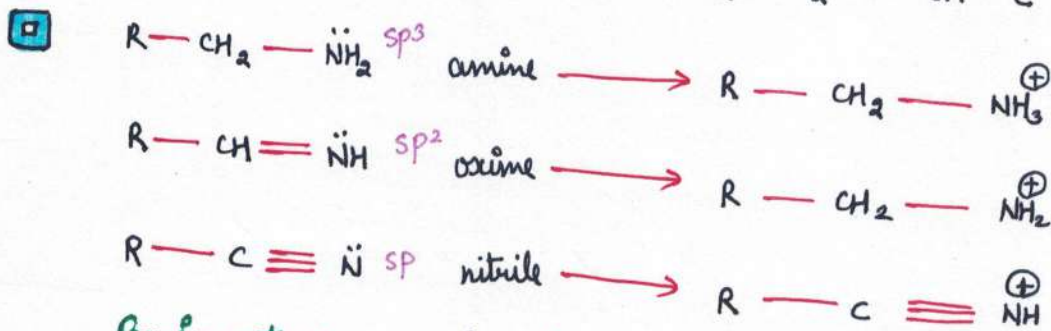 R — CH₂ — N̈H₂ sp3 amine ⟶ R — CH₂ — NH₃⊕
R — CH = N̈H sp² oxime ⟶ R — CH₂ — NH₂⊕
R — C ≡ N̈ sp nitrile ⟶ R — C ≡ NH⊕